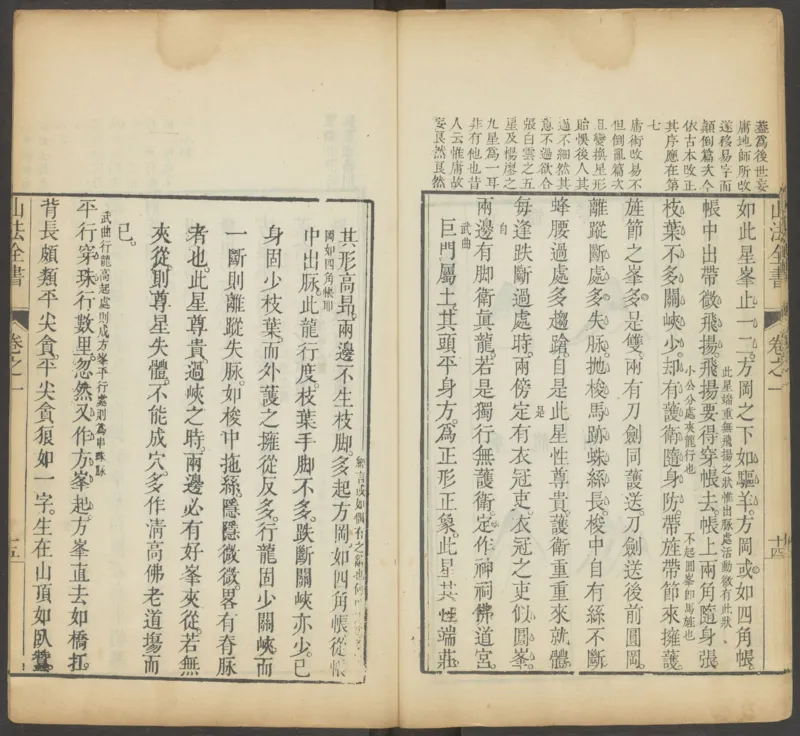 蓋爲後世妄
庸地師所改
遂移易字而
顛倒篇次今
依古本改正
其序應在第
七
庸術改易不
但倒亂篇次
且變換星形
貽悞後人其
過不細然其
意不過欲合
張白雲之五
星及楊廖之
九星爲一耳
非有他也昔
人云惟庸故
妄良然良然
山法全書
卷之一
十四
如此星峯止一二方岡之下如驅羊方岡或如四角帳
帳中出帶微飛揚飛揚要得穿帳去帳上兩角隨身張
此星端重無飛揚之狀惟出脉處活動微有此狀
枝葉不多關峽少却有護衛隨身防帶旌帶節來擁護
小公分處夾龍行也
不起圓峯即馬旌也
旌節之峯多是雙兩有刀劍同護送刀劍送後前圓岡
離蹤斷處多失脉抛梭馬跡蛛絲長梭中自有絲不斷
蜂腰過處多趨蹌自是此星性尊貴護衛重重來就體
每逢跌斷過處時兩傍定有衣冠吏衣冠之吏似圓峯
自
是
兩邊有脚衛眞龍若是獨行無護衛定作神祠佛道宮
武曲
巨門屬土其頭平身方爲正形正象此星其性端莊
其形高昻兩邊不生枝脚多起方岡如四角帳從帳
國如四角帳聊
中出脉此龍行度枝葉手脚不多跌斷關峽亦少已
身固少枝葉而外護之擁從反多行龍固少關峽而
一斷則離蹤失脉如梭中拖絲隱隱微微畧有脊脉
者也此星尊貴過峽之時兩邊必有好峯夾從若無
夾從則尊星失體不能成穴多作清高佛老道塲而
已
武曲行龍高起處則成方峯平行處則爲串珠脉
平行穿珠行數里忽然又作方峯起方峯直去如橋扛
背長頗類平尖貪平尖貪狼如一字生在山頂如臥蠶
山法全書
卷之一
十五